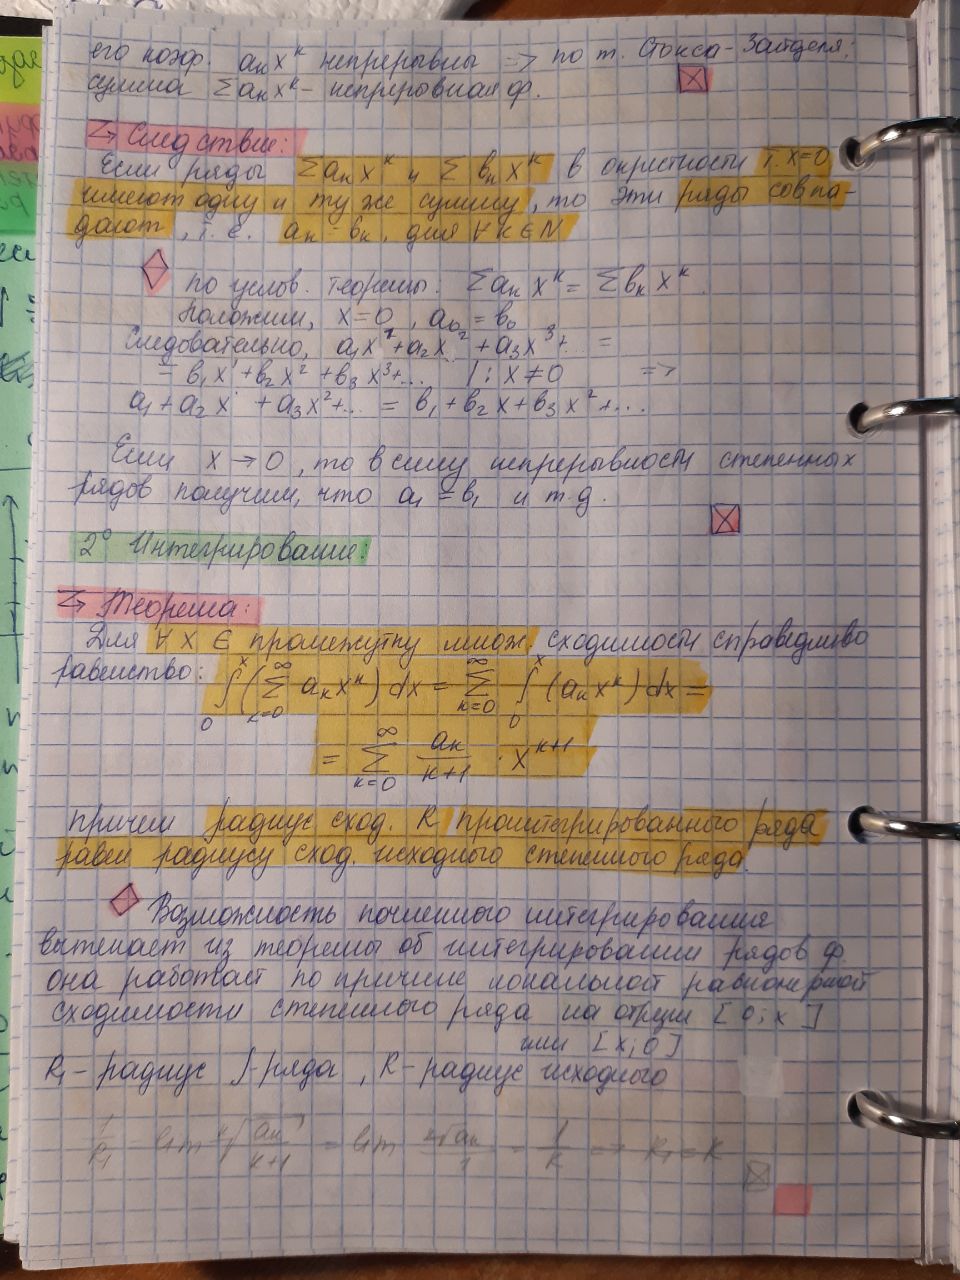 его коэф. aₖxᵏ непрерывны => по т. Стокса-Зайделя:
сумма Σaₖxᵏ - непрерывная ф.
Следствие:
Если ряды Σaₖxᵏ и Σbₖxᵏ в окрестности т. x=0
имеют одну и ту же сумму, то эти ряды совпа-
дают, т.е. aₖ = bₖ, для ∀k∈N
по услов. теоремы: Σaₖxᵏ = Σbₖxᵏ
Положим, x=0, a₀ = b₀
Следовательно, a₁x¹+a₂x²+a₃x³+... =
= b₁x¹+b₂x²+b₃x³+... /: x≠0 =>
a₁+a₂x+a₃x²+... = b₁+b₂x+b₃x²+...
Если x→0, то в силу непрерывности степенных
рядов получим, что a₁=b₁ и т.д.
2° Интегрирование:
Теорема:
Для ∀x∈ промежутку множ. сходимости справедливо
равенство: ∫₀ˣ(Σₖ₌₀^∞ aₖxᵏ)dx = Σₖ₌₀^∞ ∫₀ˣ(aₖxᵏ)dx =
= Σₖ₌₀^∞ aₖ/(k+1) · xᵏ⁺¹
причём радиус сход. R проинтегрированного ряда
равен радиусу сход. исходного степенного ряда.
Возможность почленного интегрирования
вытекает из теоремы об интегрировании рядов ф.
она работает по причине локальной равномерной
сходимости степенного ряда на отрезке [0;x]
или [x;0]
R₁ - радиус ∫-ряда, R - радиус исходного
1/R₁ = lim ᵏ√(aₖ/(k+1)) = lim ᵏ√aₖ/1 = 1/R => R₁=R